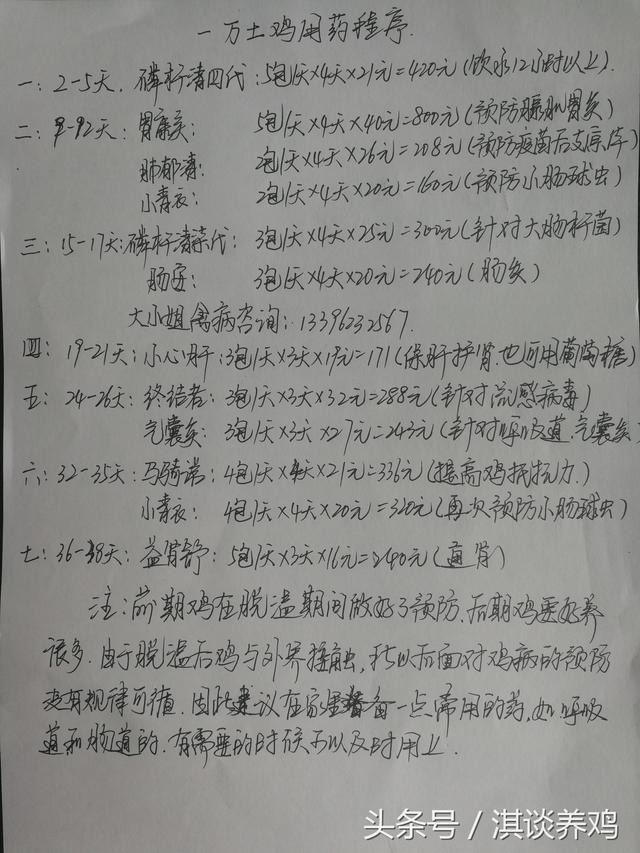 一万土鸡用药程序.
一: 2-5天. 磷杆清四代: 5包/天×4天×21元=420元(饮水12小时以上).
二: 9-92天: 胃康灸: 5包/天×4天×40元=800元(预防腺肌胃炎)
肺郁清: 2包/天×4天×26元=208元(预防疫苗后支原体)
小青衣: 2包/天×4天×20元=160元(预防小肠球虫)
三: 15-17天: 磷杆清柒代: 3包/天×4天×25元=300元(针对大肠杆菌)
肠安: 3包/天×4天×20元=240元(肠炎)
大小姐禽病咨询: 13396232567.
四: 19-21天: 小心肝: 3包/天×3天×19元=171(保肝护肾.也可用葡萄糖)
五: 24-26天: 终结者: 3包/天×3天×32元=288元(针对流感病毒)
气囊炎: 3包/天×3天×27元=243元(针对呼吸道.气囊炎)
六: 32-35天: 马骑诺: 4包/天×4天×21元=336元(提高鸡抵抗力.)
小青衣: 4包/天×4天×20元=320元(再次预防小肠球虫)
七: 36-38天: 益肾舒: 5包/天×3天×16元=240元(通肾)
注: 前期鸡在脱温期间做好了预防.后期鸡要好养
很多.由于脱温后鸡与外界接触,所以后面对鸡病的预防
没有规律可循.因此建议在家里备一点常用的药,如呼吸
道和肠道的.有需要的时候可以及时用上.
头条号 / 淇谈养鸡